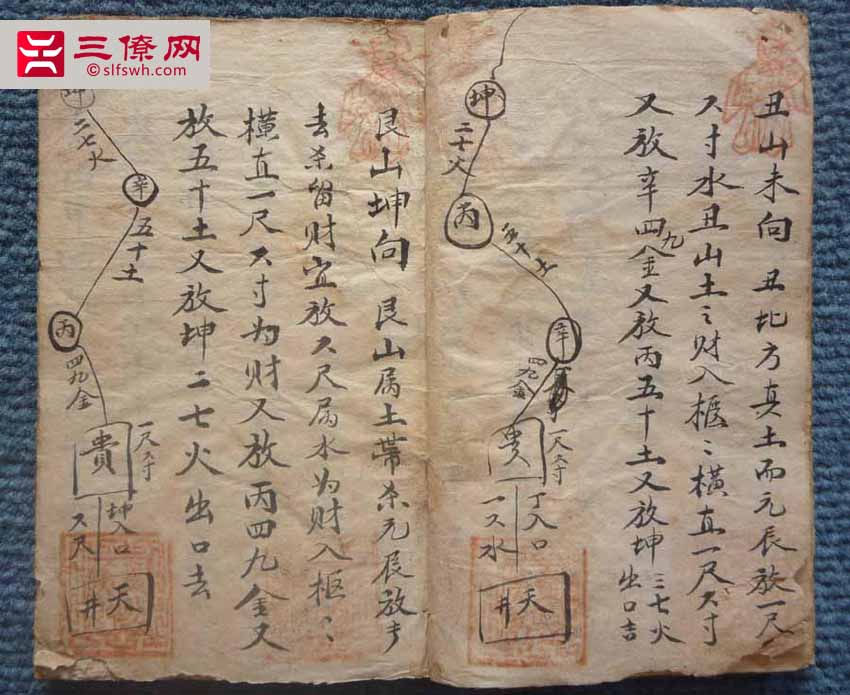 三僚网
©slfswh.com
丑山未向 丑比方真土而元辰放一尺
六寸水丑山土之财入柜〻横直一尺六寸
又放辛四九金又放丙五十土又放坤二七火
出口吉
坤
二七火
丙
五十土
辛
四九金
一尺六寸
贵
丁入口
一六水
天井
艮山坤向 艮山属土帶杀元辰放
去杀留财宜放六尺属水为财入柜〻
横直一尺六寸为财又放丙四九金又
放五十土又放坤二七火出口去
坤
二七火
辛
五十土
丙
四九金
一尺六寸
貴
坤入口
六尺
天井